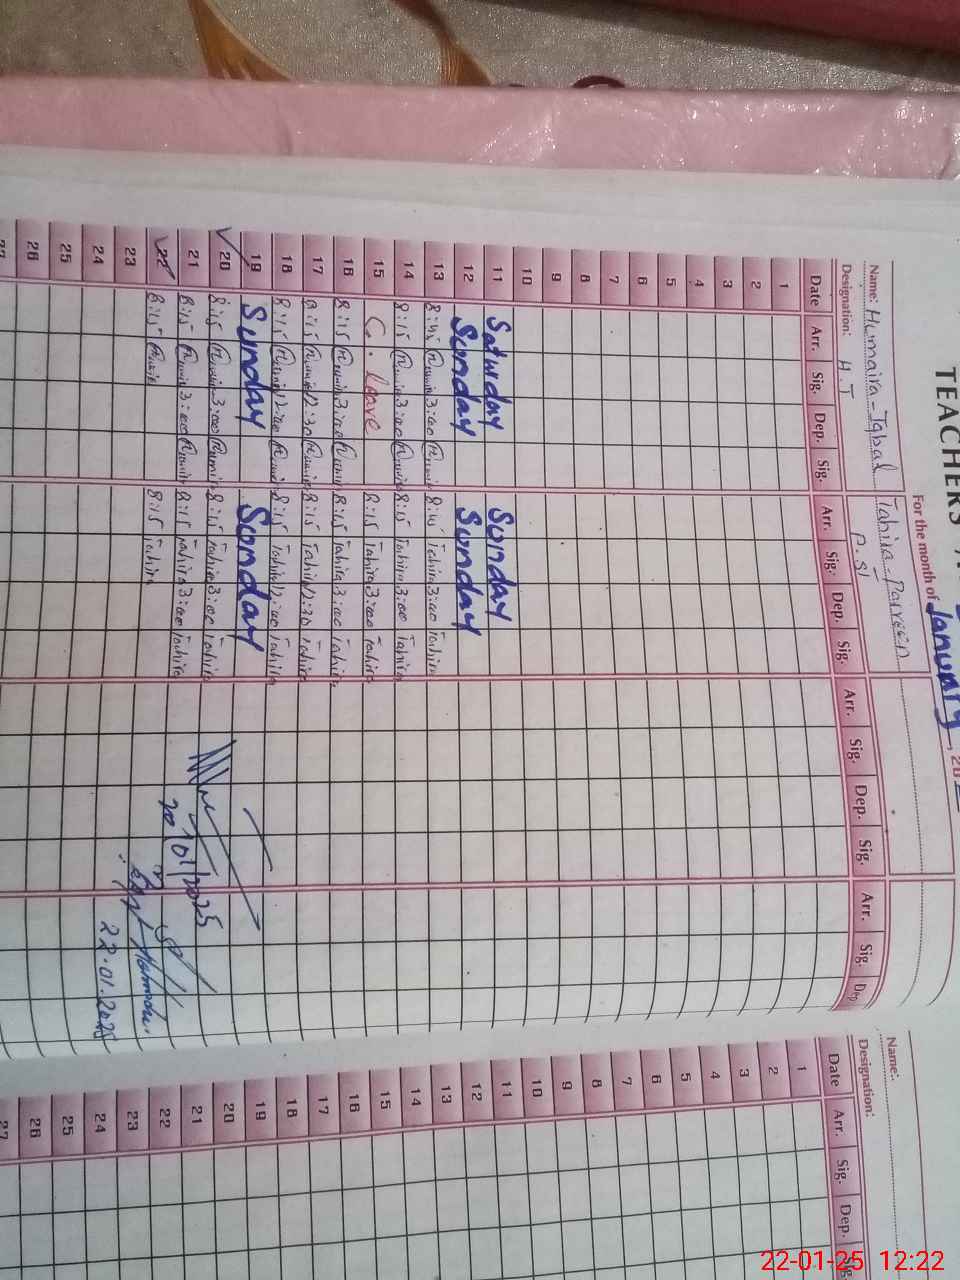 TEACHERS
For the month of January, 20
Name: Humaira - Iqbal Tahira - Parveen
Designation: H.T P.ST
Date Arr. Sig. Dep. Sig. Arr. Sig. Dep. Sig. Arr. Sig. Dep. Sig. Arr. Sig. Dep
1
2
3
4
5
6
7
8
9
10
11 Saturday Sunday
12 Sunday Sunday
13 8:45 3:00 8:45 Tahira 3:00 Tahira
14 8:15 3:00 8:15 Tahira 3:00 Tahira
15 C. leave 8:15 Tahira 3:00 Tahira
16 8:15 3:00 8:15 Tahira 3:00 Tahira
17 8:15 12:30 8:15 Tahira 12:30 Tahira
18 8:15 12:00 8:15 Tahira 12:00 Tahira
19 Sunday Sunday
20 8:15 3:00 8:15 Tahira 3:00 Tahira
21 8:15 3:00 8:15 Tahira 3:00 Tahira
22 8:15 8:15 Tahira
23
24
25
26
27
20/01/2025
22.01.2025
Name:
Designation:
Date Arr. Sig. Dep. Sig.
1
2
3
4
5
6
7
8
9
10
11
12
13
14
15
16
17
18
19
20
21
22
23
24
25
26
27
22-01-25 12:22